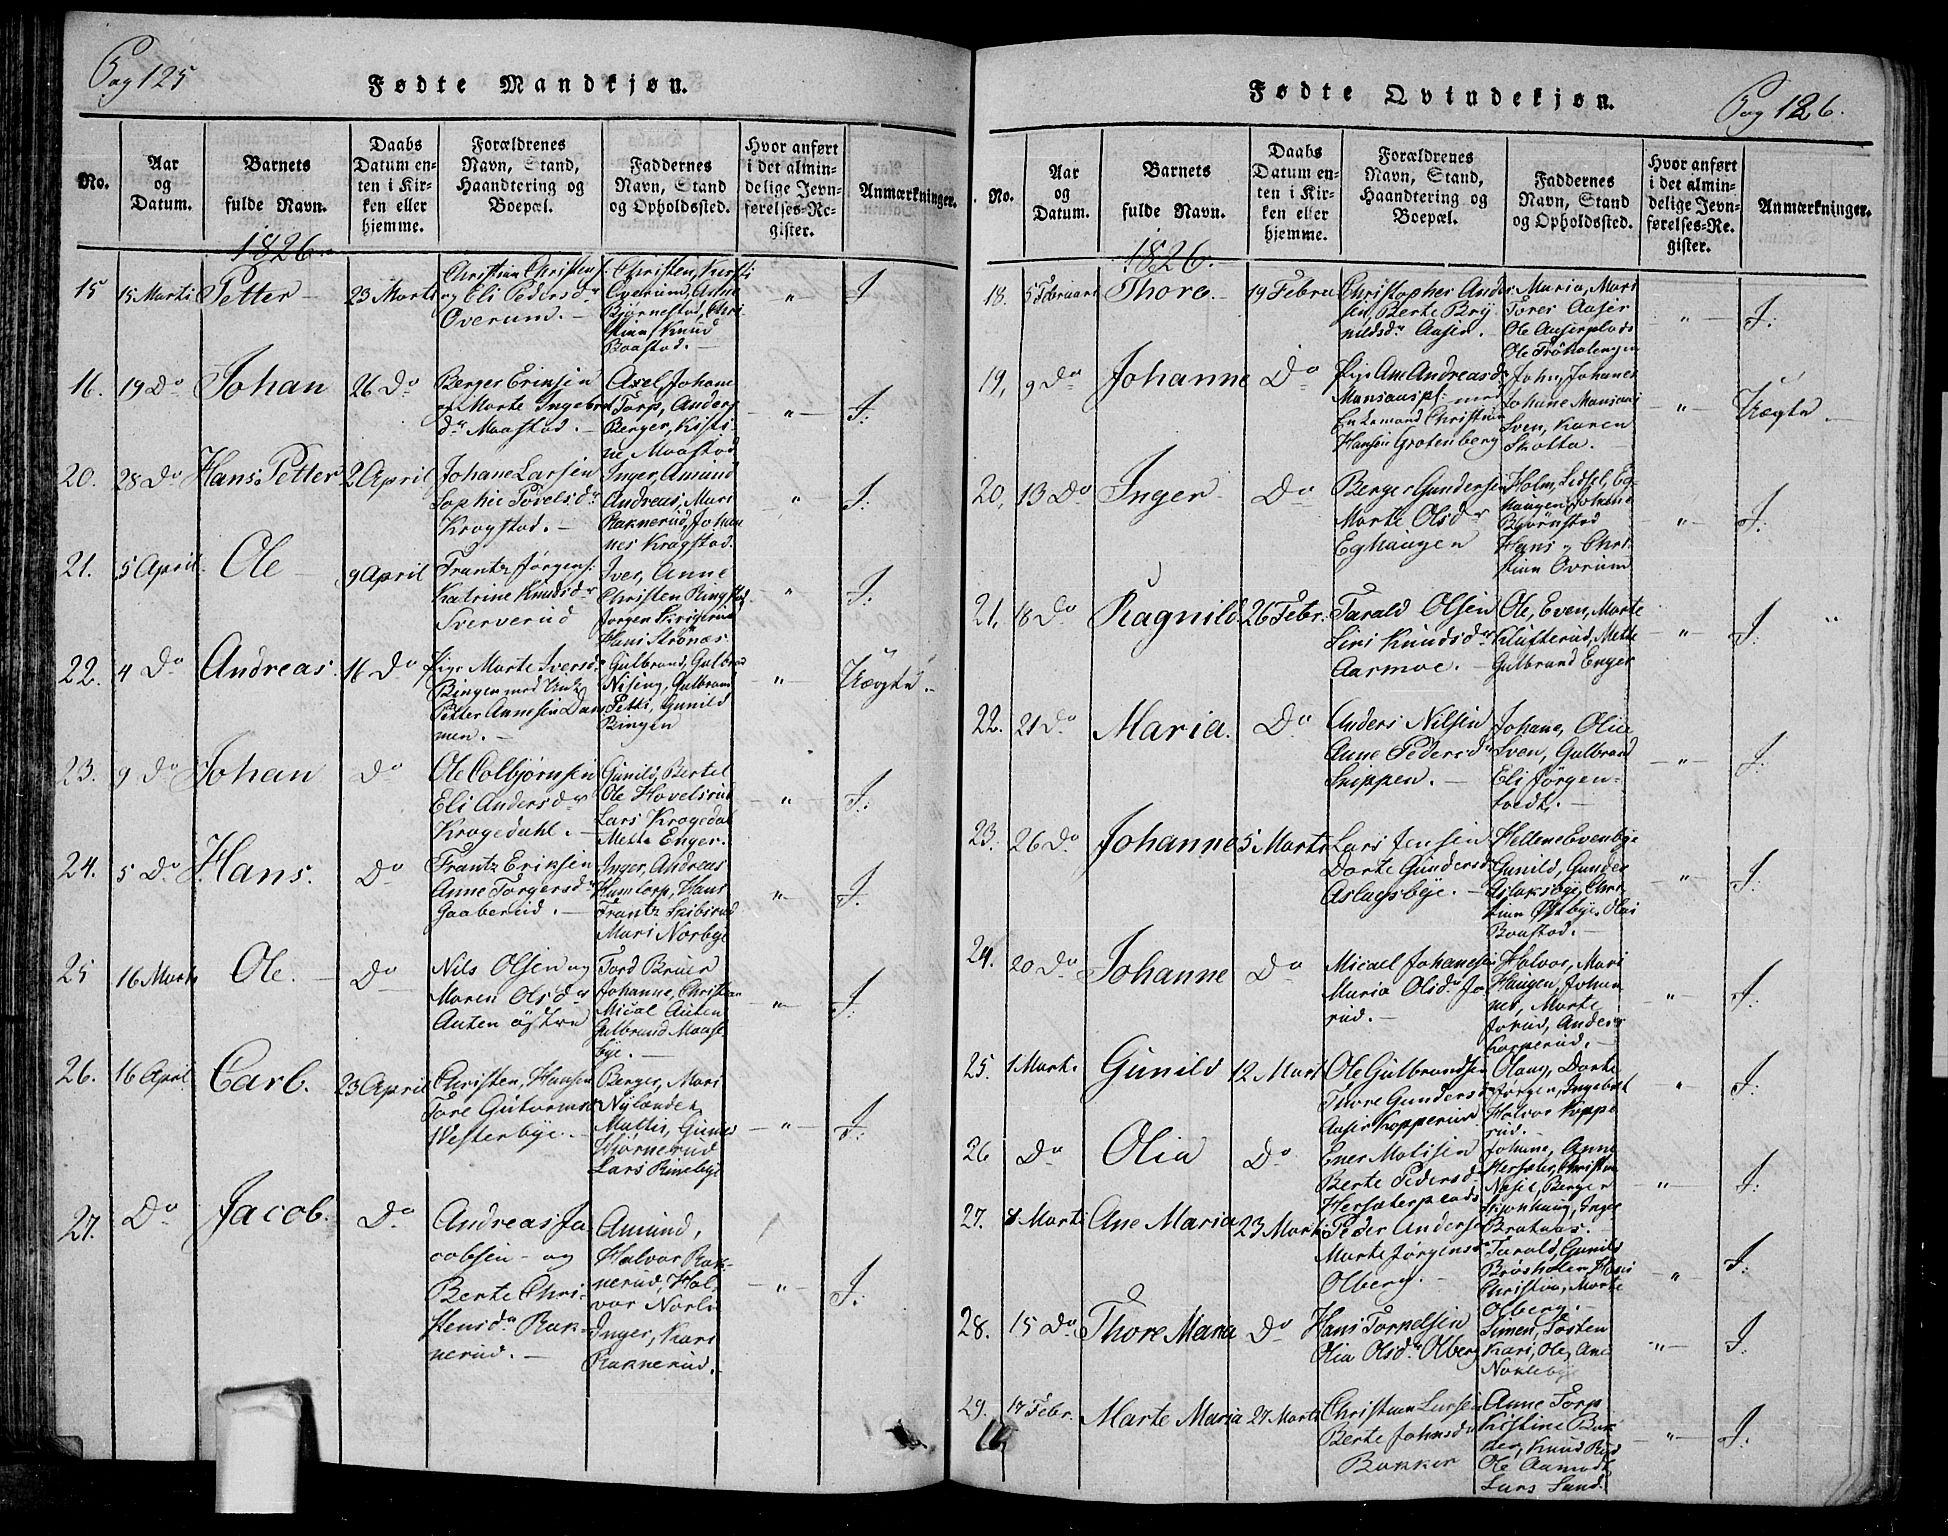 Pag 125
Fødte Mandkjøn.
No.
Aar
og
Datum.
Barnets
fulde Navn.
Daabs
Datum en-
ten i Kir-
ken eller
hjemme.
Forældrenes
Navn, Stand,
Haandtering og
Boepæl.
Faddernes
Navn, Stand
og Opholdssted.
Hvor anført
i det almin-
delige Jevn-
førelses-Re-
gister.
Anmærkninger.
1826.
15
15 Marti
Petter
23 Marti
Christian Christens.
og Eli Pedersdr
Overum.
Christen, Kirsti
Overum, Anne
Bjørnestad, Chri-
stian Knud
Baastad.
"
J
16.
19 Do
Johan
26 Do
Berger Eriksen
og Marte Ingebret
dr Maastad.
Axel, Johane
Torp, Anders
Berger, Kisti-
ne, Maastad
"
J:
20.
28 Do
Hans Petter
2 April
Johane Larsen
Sophie Povelsdr
Kragstad.
Inger, Amund
Andreas, Mari
Raknerud, Johan
nes Kragstad.
"
J:
21.
5 April
Ole
9 April
Frantz Jørgens:
Katrine Knudsdr
Sververud
Iver, Anne
Christen Ringstad
Jørgen Krigerud
Hans Strønæs
"
J:
22.
4 Do
Andreas
16 Do
Pige Marte Iversdr
Bingen med Unk
Petter Annesen Dam
men.
Gulbrand, Gulbrand
Nising, Gulbrand
Petti, Gunild
Bingen
"
Uægte
23.
9 Do
Johan
Do
Ole Colbjørnsen
Eli Andersdr
Krogedahl.
Gunild, Bertel
Ole Hovelsrud
Lars Krogedal
Mette Enger.
"
J:
24.
5 Do
Hans.
Do
Frantz Eriksen
Anne Torgersdr
Gaaberud.
Inger, Andreas
Humtorp, Hans
Frantz Skibsrud
Mari Norbye
"
J:
25
16 Marti
Ole.
Do
Nils Olsen og
Maren Olsdr
Auten østre
Tord Bruer
Johanne, Christian
Micael Auten
Gulbrand Maase
bye.
"
J:
26.
16 April
Carl.
23 April
Christen, Hansen
Tore Gutormsdr
Westerbye.
Berger, Mari
Nylandet,
Mattis, Gunild
Skjørnerud
Lars Rinebye
"
J:
27.
Do
Jacob.
Do
Andreas Ja
cobsen og
Berte Chri-
stensdr Rak-
nerud.
Amund,
Halvor Rak-
nerud, Hal-
vor Norli
Inger, Kari
Raknerud.
"
J:
Fødte Qvindekjøn.
Pag 126.
No.
Aar
og
Datum.
Barnets
fulde Navn.
Daabs
Datum en-
ten i Kir-
ken eller
hjemme.
Forældrenes
Navn, Stand,
Haandtering og
Boepæl.
Faddernes
Navn, Stand
og Opholdssted.
Hvor anført
i det almin-
delige Jevn-
førelses-Re-
gister.
Anmærkninger.
1826.
18.
5 Februari
Thore.
19 Febru
Christopher Ander
sen, Berte Bry
nildsdr Aasen.
Maria, Mari
Tores Aasen
Ole Aaserplads
Ole Trøhalengen
"
J:
19.
9 Do
Johanne
Do
Pige Ane Andreasdr
Mansauspl. med
Enkemand Christian
Hansen Grotenberg
John, Johanes
Johane Mansaus
Sven, Karen
Skotta.
"
Uægte
20.
13 Do
Inger
Do
Berger Gundersen
Marte Olsdr
Eghaugen
Holm, Sidsel, Eg-
haugen, Johane
Bjørnstad
Hans og Chri-
stian Ovrum
"
J:
21.
18 Do
Ragnild
26 Febr.
Tarald Olsen
Siri Knudsdr
Aarmoe.
Ole, Even, Marte
Klufterud, Mette
Gulbrand Enger
"
J
22.
21 Do
Maria.
Do
Anders Nilsen
Anne Pedersdr
Snippen.
Johane, Olia
Sven, Gulbrand
Eli Jørgen-
toedt.
"
J:
23.
26 Do
Johanne
5 Marti
Lars Jensen
Dorte Gundersdr
Aslagsbye.
Hellene Evenbye
Gunild, Gunder
Aslaksbye, Chri-
stian Østbye, Olai
Baastad.
"
J:
24.
20 Do
Johanne
Do
Micael Johanesen
Maria Olsdr Jo
rud.
Halvor, Mari
Haugen, Johan-
nes, Marte
Jorud, Anders
Kopperud.
"
J:
25.
1 Marti
Gunild
12 Mart
Ole Gulbrandsen
Thore Gundersdr
Aaser Kopperud
Olaug, Dorte
Jørgen, Ingebret
Halvor Koppe
rud.
"
J:
26
Do
Olia
Do
Ener Matisen
Berte Pedersd
Hersæterplads
Johane, Anne
Hersæter, Christen
Næset, Berger
Skjonhaug, Inger
Bratnæs.
"
J:
27.
8 Marti
Ane Maria
23 Marti
Peder Anderse
Marte Jørgensd
Olberg.
Tarald, Gunild
Brøsholen, Hans
Christian, Marte
Olberg.
"
J:
28.
15 Do
Thore Maria
Do
Hans Tornelsen
Olia Olsdr Olberg
Simen, Tosten
Kari, Ole, Ane
Noklebye
"
J:
29.
17 Febr.
Marte Maria
27 Marti
Christian Larsen
Berte Johnsdr
Bakker
Anne Torp
Kistine Bak
ker, Knud Rud
Ole Aamodt
Lars Sand.
"
J: